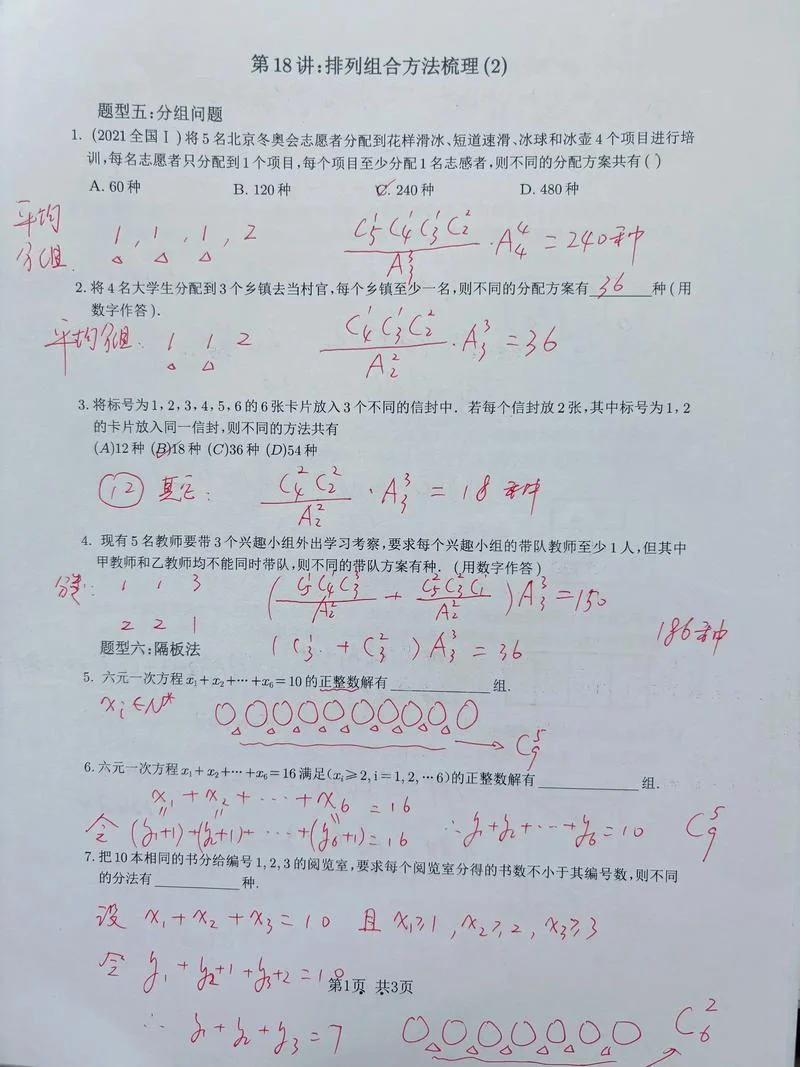 第18讲:排列组合方法梳理(2)
题型五:分组问题
1. (2021全国Ⅰ)将5名北京冬奥会志愿者分配到花样滑冰、短道速滑、冰球和冰壶4个项目进行培
训,每名志愿者只分配到1个项目,每个项目至少分配1名志感者,则不同的分配方案共有( )
A. 60种 B. 120种 C. 240种 D. 480种
平均
分组
1 , 1 , 1 , 2
C₅¹C₄¹C₃¹C₂² / A₃³ · A₄⁴ = 240种
2. 将4名大学生分配到3个乡镇去当村官,每个乡镇至少一名,则不同的分配方案有 36 种(用
数字作答).
平均分组: 1 1 2
C₄¹C₃¹C₂² / A₂² · A₃³ = 36
3. 将标号为1,2,3,4,5,6的6张卡片放入3个不同的信封中. 若每个信封放2张,其中标号为1,2
的卡片放入同一信封,则不同的方法共有
(A)12种 (B)18种 (C)36种 (D)54种
12 其它: C₄²C₂² / A₂² · A₃³ = 18种
4. 现有5名教师要带3个兴趣小组外出学习考察,要求每个兴趣小组的带队教师至少1人,但其中
甲教师和乙教师均不能同时带队,则不同的带队方案有种. (用数字作答)
分类: 1 1 3
(C₅¹C₄¹C₃³ / A₂² + C₅²C₃²C₁¹ / A₂²) A₃³ = 150
2 2 1
题型六:隔板法
(C₃¹ + C₃²) A₃³ = 36
186种
5. 六元一次方程x₁+x₂+⋯+x₆=10的正整数解有 组.
xᵢ∈N* → C₉⁵
6. 六元一次方程x₁+x₂+⋯+x₆=16满足(xᵢ⩾2,i=1,2,⋯6)的正整数解有 组.
x₁+x₂+⋯+x₆ = 16
令 (y₁+1)+(y₂+1)+⋯+(y₆+1)=16 ∴y₁+y₂+⋯+y₆=10 C₉⁵
7. 把10本相同的书分给编号1,2,3的阅览室,要求每个阅览室分得的书数不小于其编号数,则不同
的分法有 种.
设 x₁+x₂+x₃=10 且 x₁≥1 , x₂≥2 , x₃≥3
令 y₁+y₂+1+y₃+2=10
第1页 共3页
∴ y₁+y₂+y₃=7 C₆²